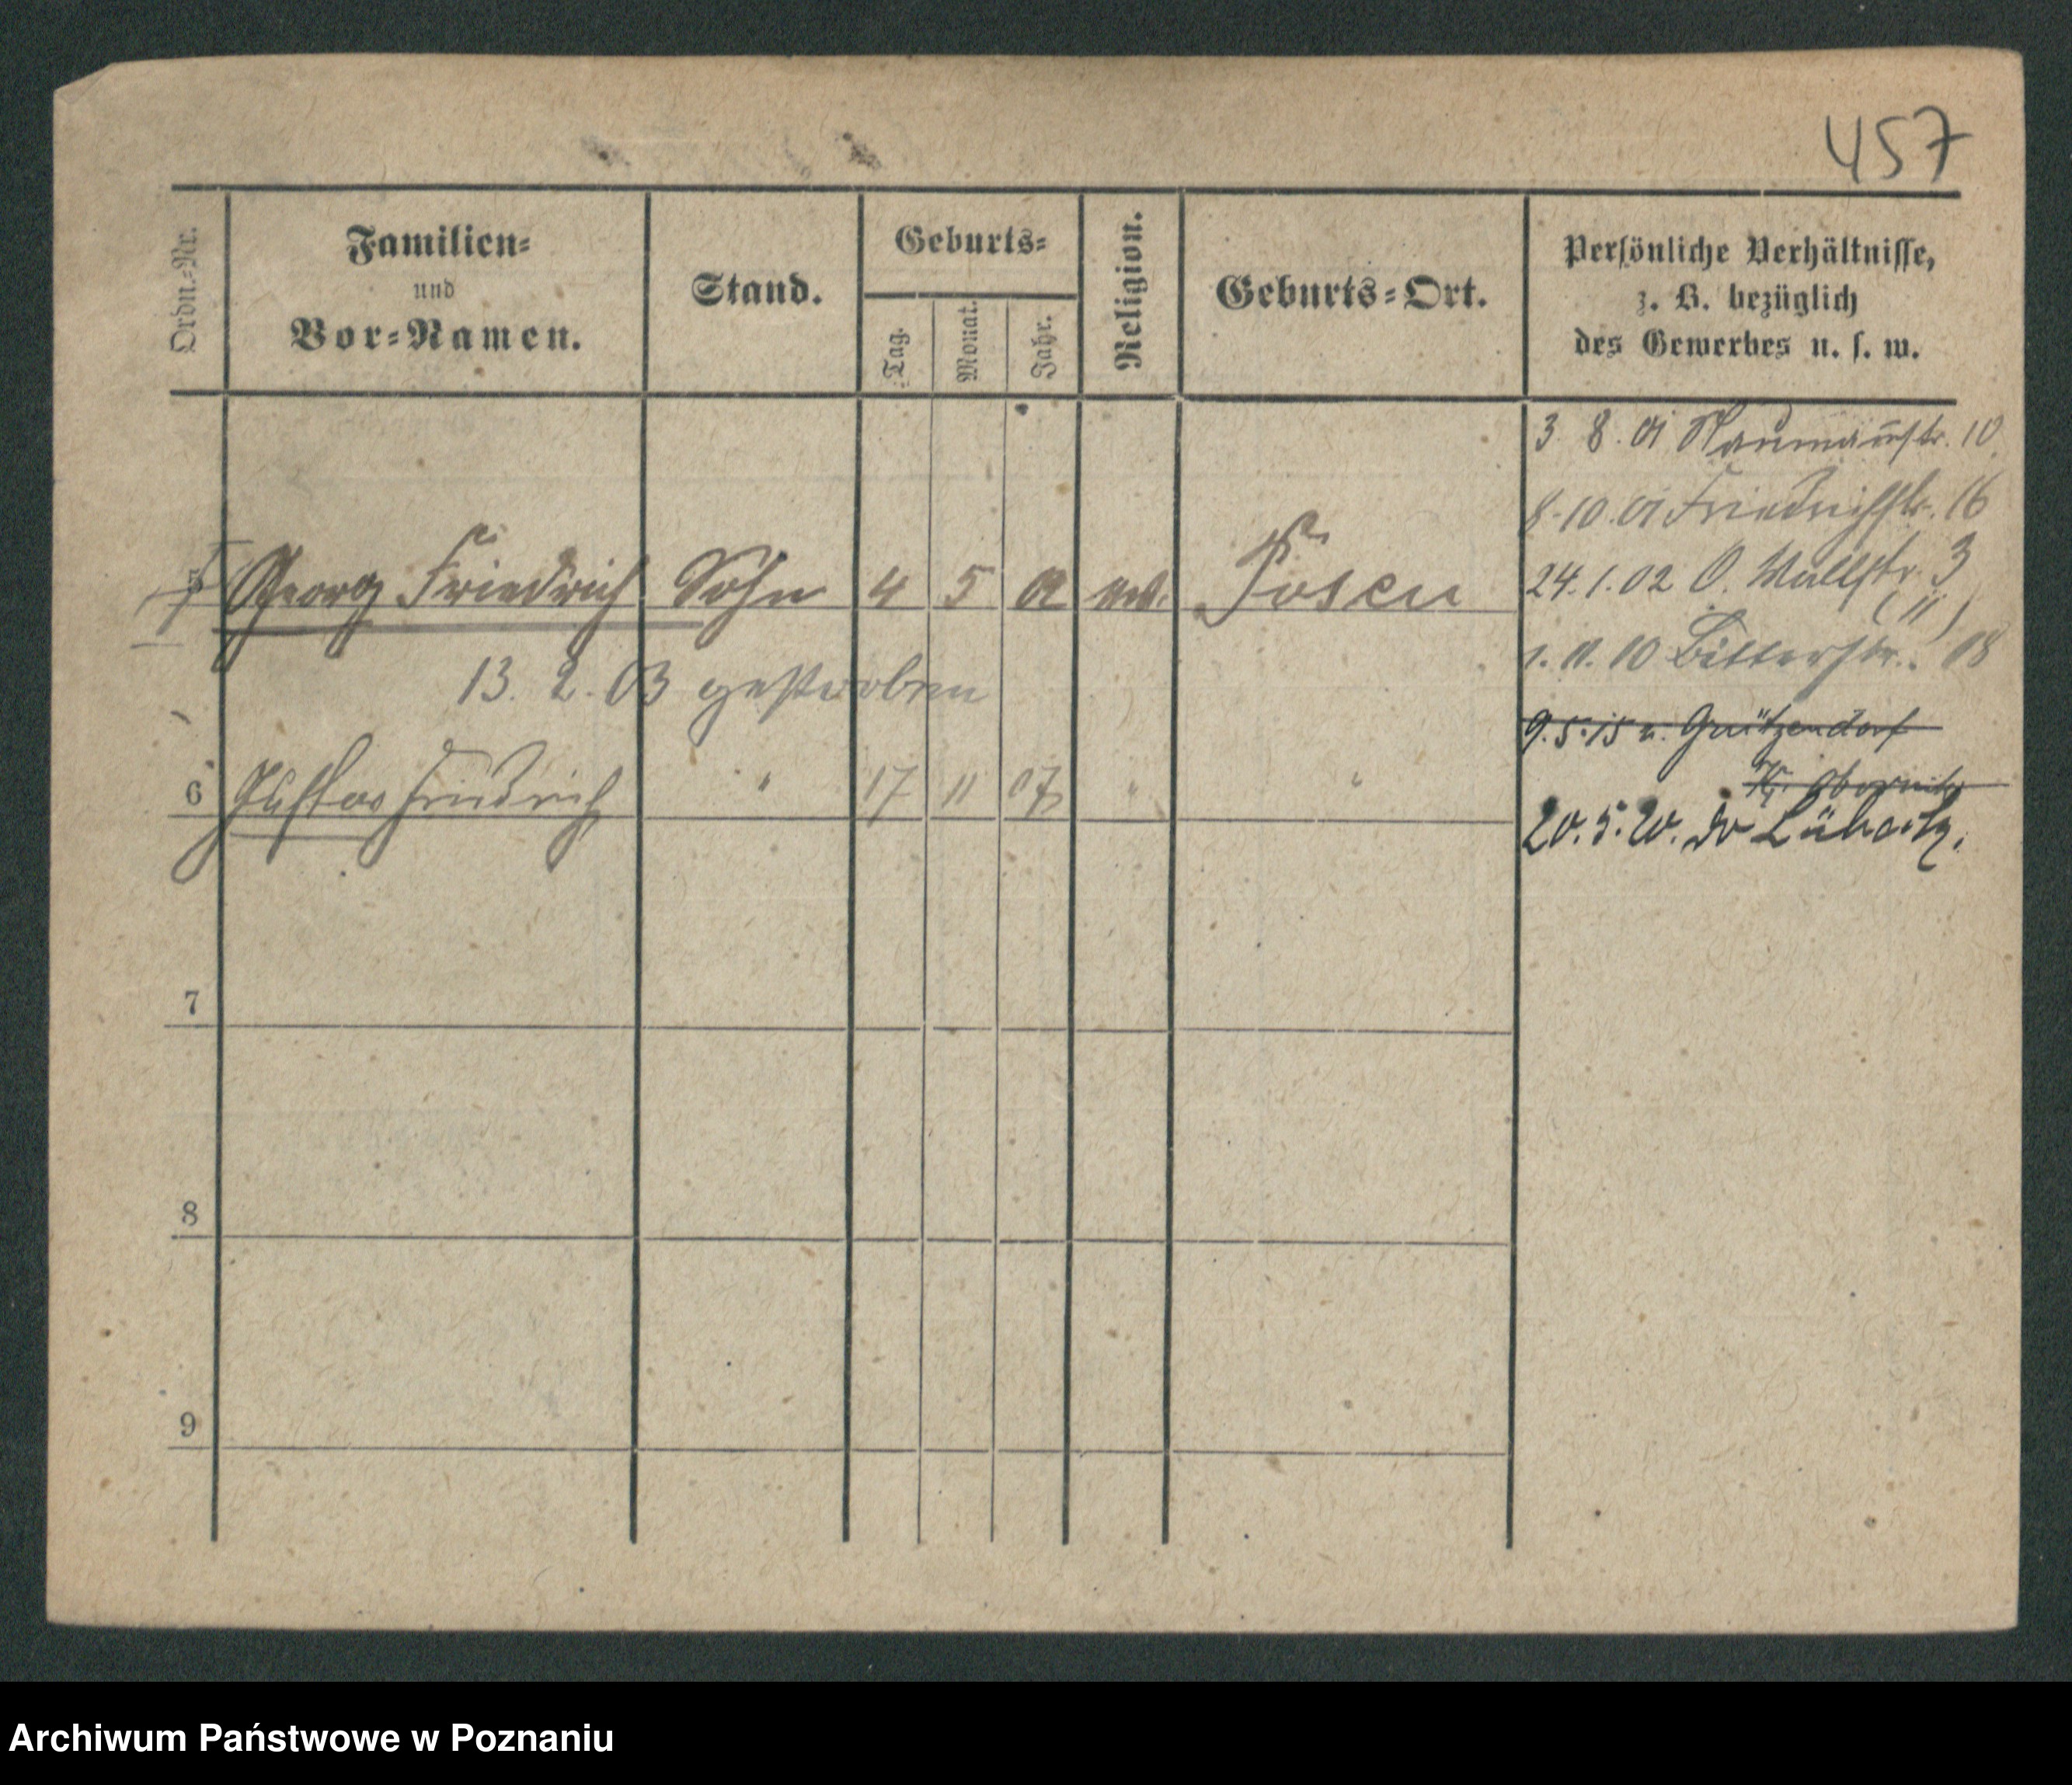 457
Ordn.=Nr.
Familien=
und
Vor=Namen.
Stand.
Geburts=
Tag.
Monat.
Jahr.
Religion.
Geburts=Ort.
Persönliche Verhältnisse,
z. B. bezüglich
des Gewerbes u. s. w.
3. 8. 01 Naumannstr. 10
8.10.01 Friedrichstr. 16
Georg Friedrich Sohn 4 5 01 ev. Posen
24.1.02 O. Wallstr. 3
(11)
13. 2. 03 gestorben
1. 11. 10 Bitterstr. 18
9.5.15 n. Grützendorf
Kr. Obornik
6 Gustav Friedrich " 17 11 07 " "
20. 5. 20.
7
8
9
Archiwum Państwowe w Poznaniu